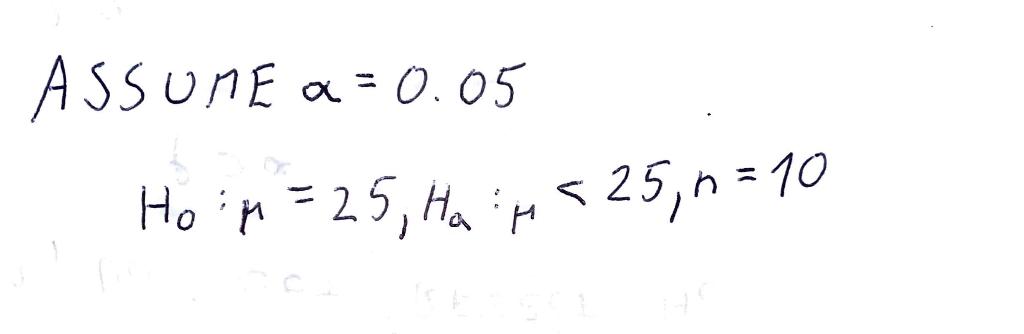 ASSUME α = 0.05
H₀ : μ = 25, Hₐ : μ < 25, n = 10